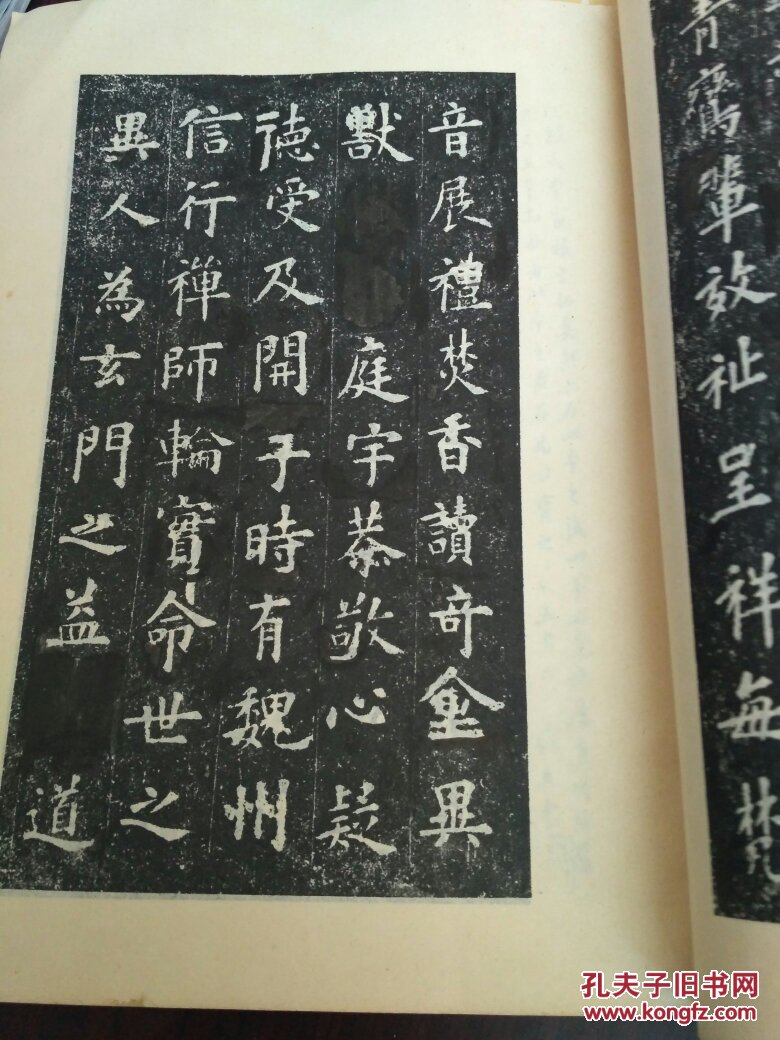 青輩效祉呈祥每梵
音展禮焚香讀奇禽異
獸庭宇恭敬心疑
徳受及開于時有魏州
信行禪師輪實命世之
異人為玄門之益道
孔夫子旧书网
www.kongfz.com